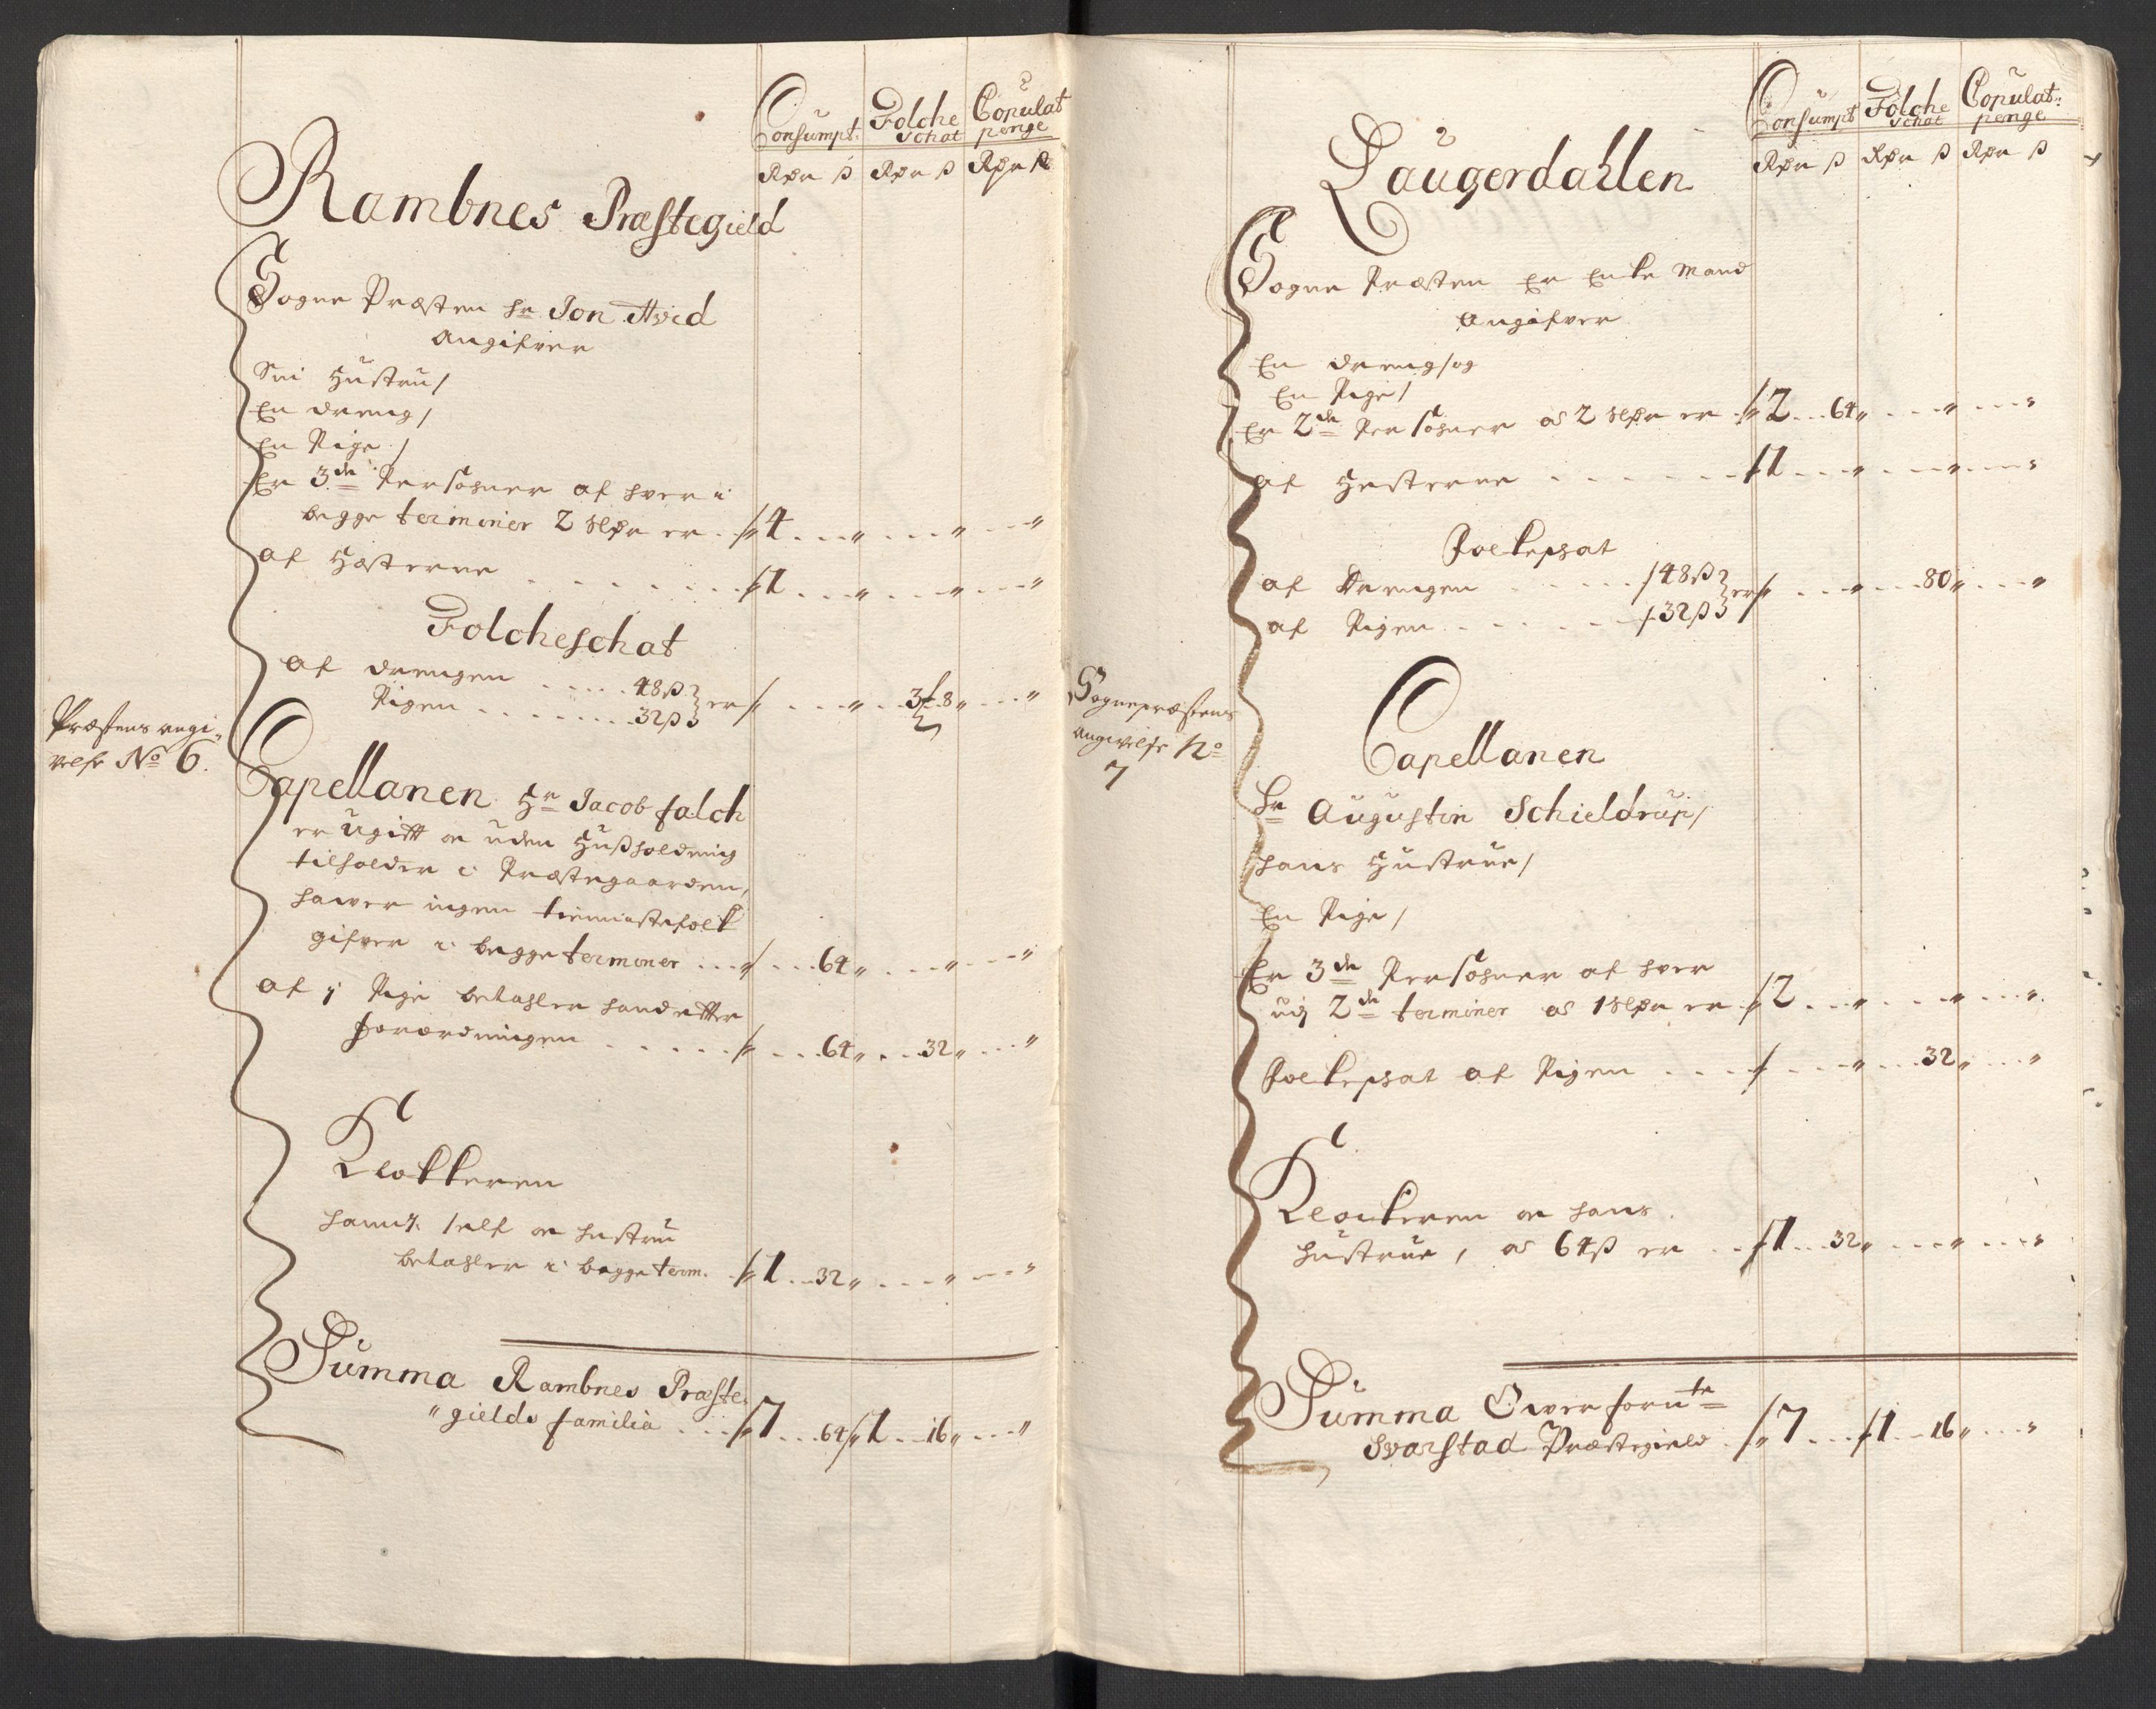 Consumpt: Folche schat Copulat penge
Rdr ß Rdr ß Rdr ß
Rambnes Præstegield
Sogne Præsten hr Jon Hvid
Angifver
Sin Hustru /
En dreng /
En Pige /
Er 3de Persohner af hver i
begge terminer 2 Rdr er 4
af Hæsterne 1
Folcheschat
af drengen 48 ß
Pigen 32 ß er
Præstens angi-
velse No 6.
Capellanen Hr Jacob falch
er ugift og uden Hußholdning
tilholder i Præstegaarden,
hawer ingen tienniste folk
gifver i begge terminer 64
af j Pige betahler hand efter
forordningen 64 32
Klokkeren
self og hustru
betahler i begge term. 1 32
Summa Rambnes Præste-
gields familia 7 64 1 16
Consumpt Folche schat Copulat: penge
Rdr ß Rdr ß Rdr ß
Laugerdahlen
Sogne Præsten Er Enke Mand
Angifver
En dreng / og
En Pige /
Er 2de Persohner a 2 Rdr er 2 64
af Hesterne 1
Folkeschat
af Drengen 48 ß
af Pigen 32 ß er 80
Sognepræstens
Angivelse No
7
Capellanen
Hr Augustin Schieldrup /
hans Hustrue /
En Pige /
Er 3de Persohner af hver
udj 2de terminer a 1 Rdr er 2
Folkeschat af Pigen 32
Klockeren og hans
hustrue, a 64 ß er 1 32
Summa Ower fornte
Svarstad Præstegield 7 1 16